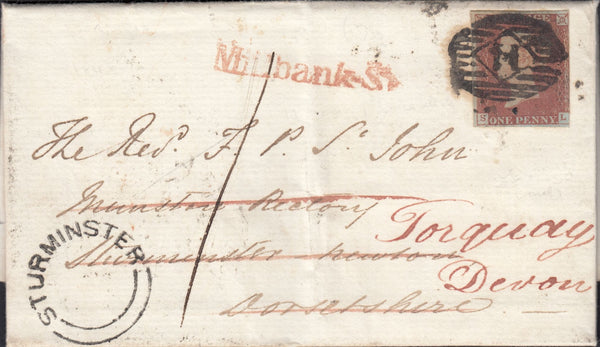 Millbank-St
POSTAGE
S ONE PENNY L
The Revd. F. P. St. John
Manston Rectory
Sturminster Newton
Dorsetshire
Torquay
Devon
1
STURMINSTER